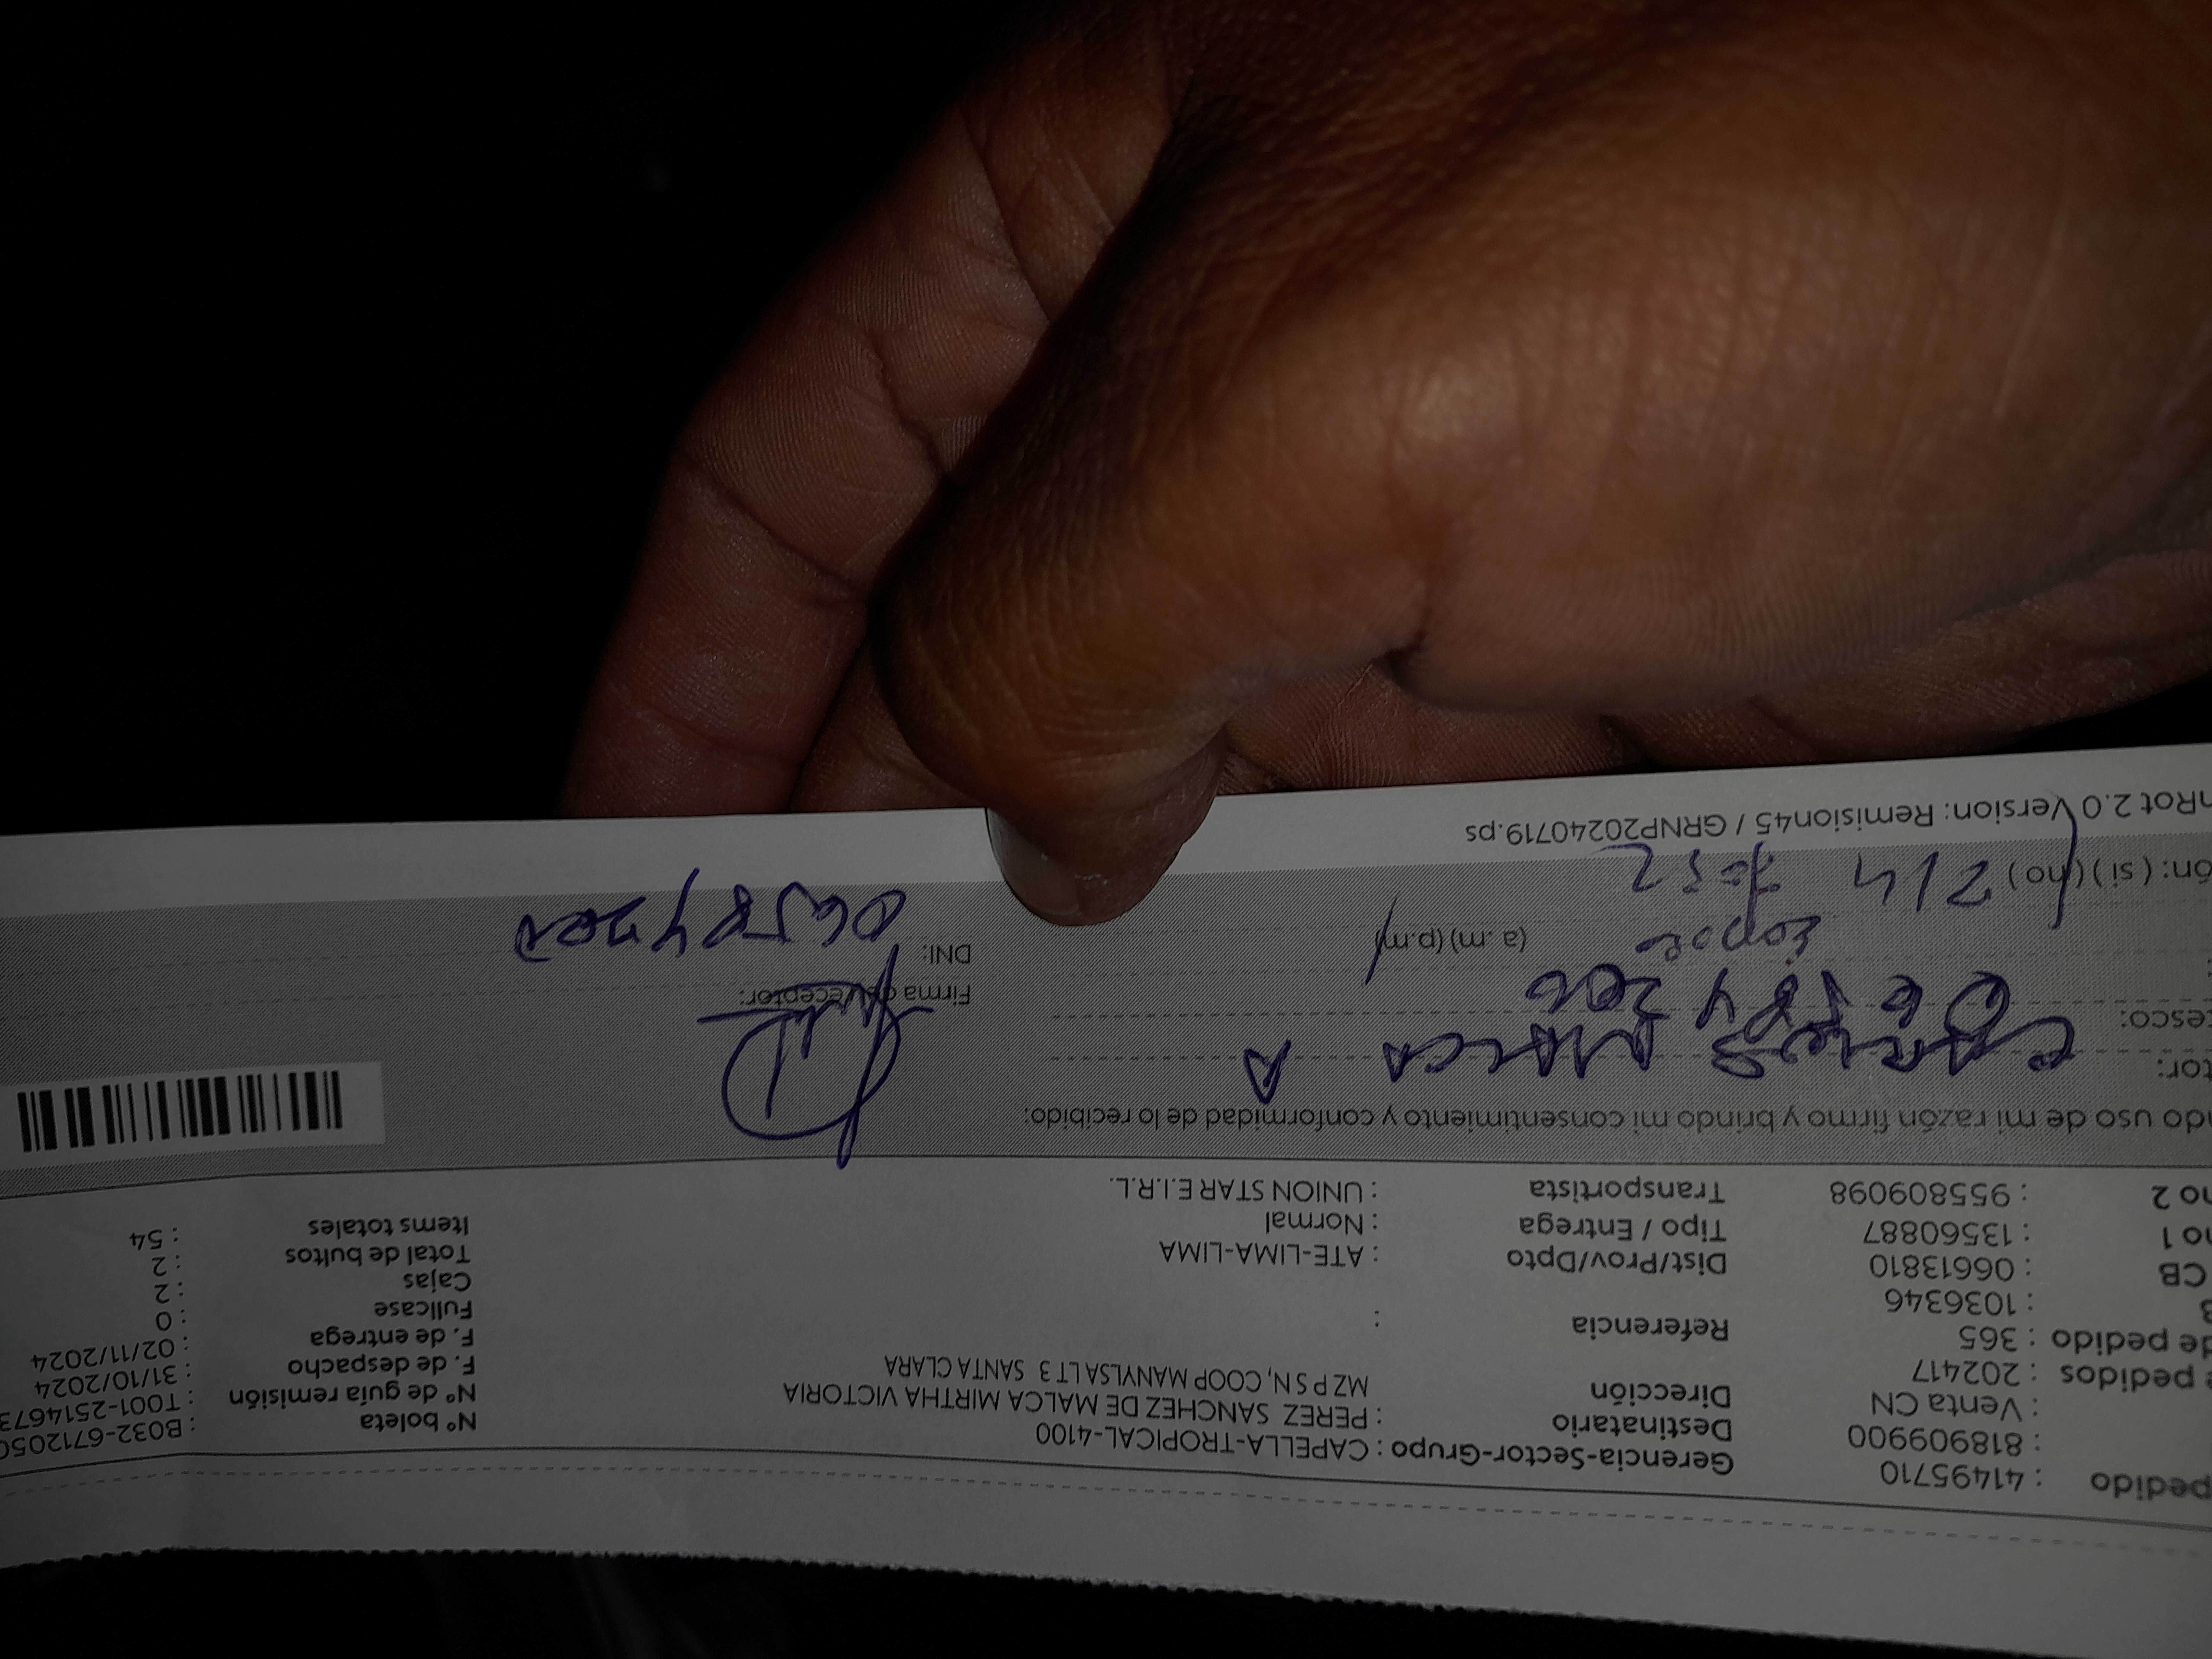 pedido : 41495710 Gerencia-Sector-Grupo : CAPELLA-TROPICAL-4100 Nº boleta : B032-671205
: 818909900 Destinatario : PEREZ SANCHEZ DE MALCA MIRTHA VICTORIA Nº de guía remisión : T001-2514673
: Venta CN Dirección MZ P S N, COOP MANYLSA LT 3 SANTA CLARA F. de despacho : 31/10/2024
e pedidos : 202417 F. de entrega : 02/11/2024
de pedido : 365 Referencia : Fullcase : 0
: 1036346 Cajas : 2
CB : 06613810 Dist/Prov/Dpto : ATE-LIMA-LIMA Total de bultos : 2
no 1 : 13560887 Tipo / Entrega : Normal Items totales : 54
no 2 : 955809098 Transportista : UNION STAR E.I.R.L.
ndo uso de mi razón firmo y brindo mi consentimiento y conformidad de lo recibido:
tor: MALCA A
tesco: Firma del receptor:
(a.m)(p.m) DNI:
ón: (si)(no)
nRot 2.0 Version: Remision45 / GRNP20240719.ps